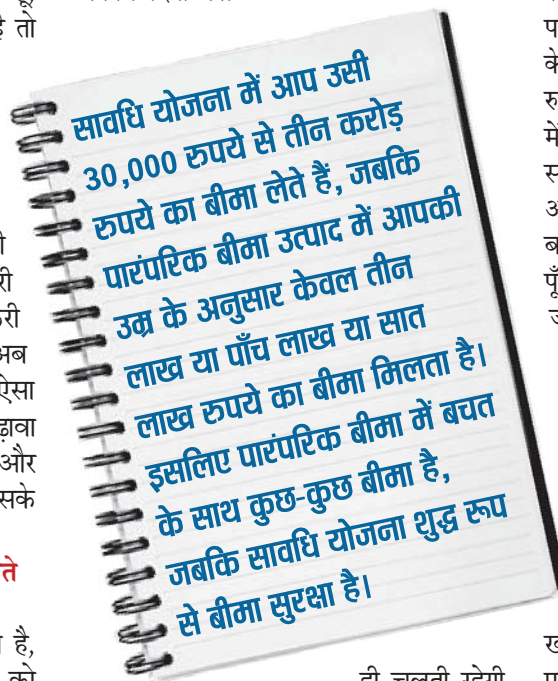 है तो
सावधि योजना में आप उसी
30,000 रुपये से तीन करोड़
रुपये का बीमा लेते हैं, जबकि
पारंपरिक बीमा उत्पाद में आपकी
उम्र के अनुसार केवल तीन
लाख या पाँच लाख या सात
लाख रुपये का बीमा मिलता है।
इसलिए पारंपरिक बीमा में बचत
के साथ कुछ-कुछ बीमा है,
जबकि सावधि योजना शुद्ध रूप
से बीमा सुरक्षा है।
और
है,
को
ही चलती रहेगी
के
में